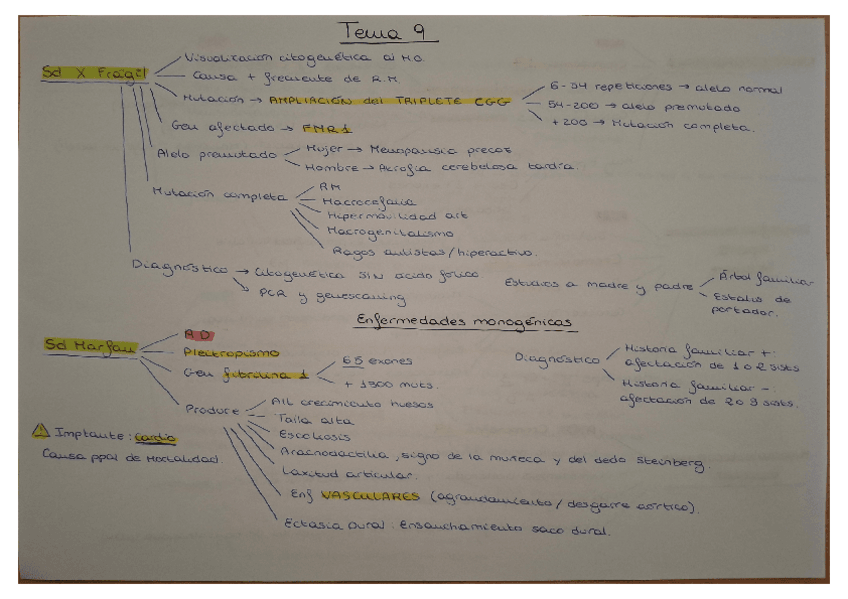 Tema 9
Sd X Frágil
Visualización citogenética al M.O.
Causa + frecuente de R.M.
Mutación → AMPLIACIÓN del TRIPLETE CGG
6-54 repeticiones → alelo normal
54-200 → alelo premutado
+200 → Mutación completa.
Gen afectado → FMR1
Alelo premutado
Mujer → Menopausia precoz
Hombre → Atrofia cerebelosa tardía.
Mutación completa
RM
Macrocefalia
Hipermovilidad art
Macrogenitalismo
Rasgos autistas/hiperactivo.
Diagnóstico → Citogenética SIN ácido fólico
PCR y genescanning
Estudios a madre y padre
Árbol familiar
Estatus de portador.
Enfermedades monogénicas
Sd Marfan
AD
Pleitropismo
Gen fibrilina 1
65 exones
+ 1300 muts.
Diagnóstico
Historia familiar +:
afectación de 1 o 2 sists
Historia familiar -:
afectación de 2 o 3 sists.
Produce
Alt crecimiento huesos
Talla alta
Escoliosis
Aracnodactilia, signo de la muñeca y del dedo Steinberg.
Laxitud articular.
Enf VASCULARES (agrandamiento/desgarre aórtico).
Ectasia Dural: Ensanchamiento saco dural.
Imptante: Cardio
Causa ppal de Mortalidad.